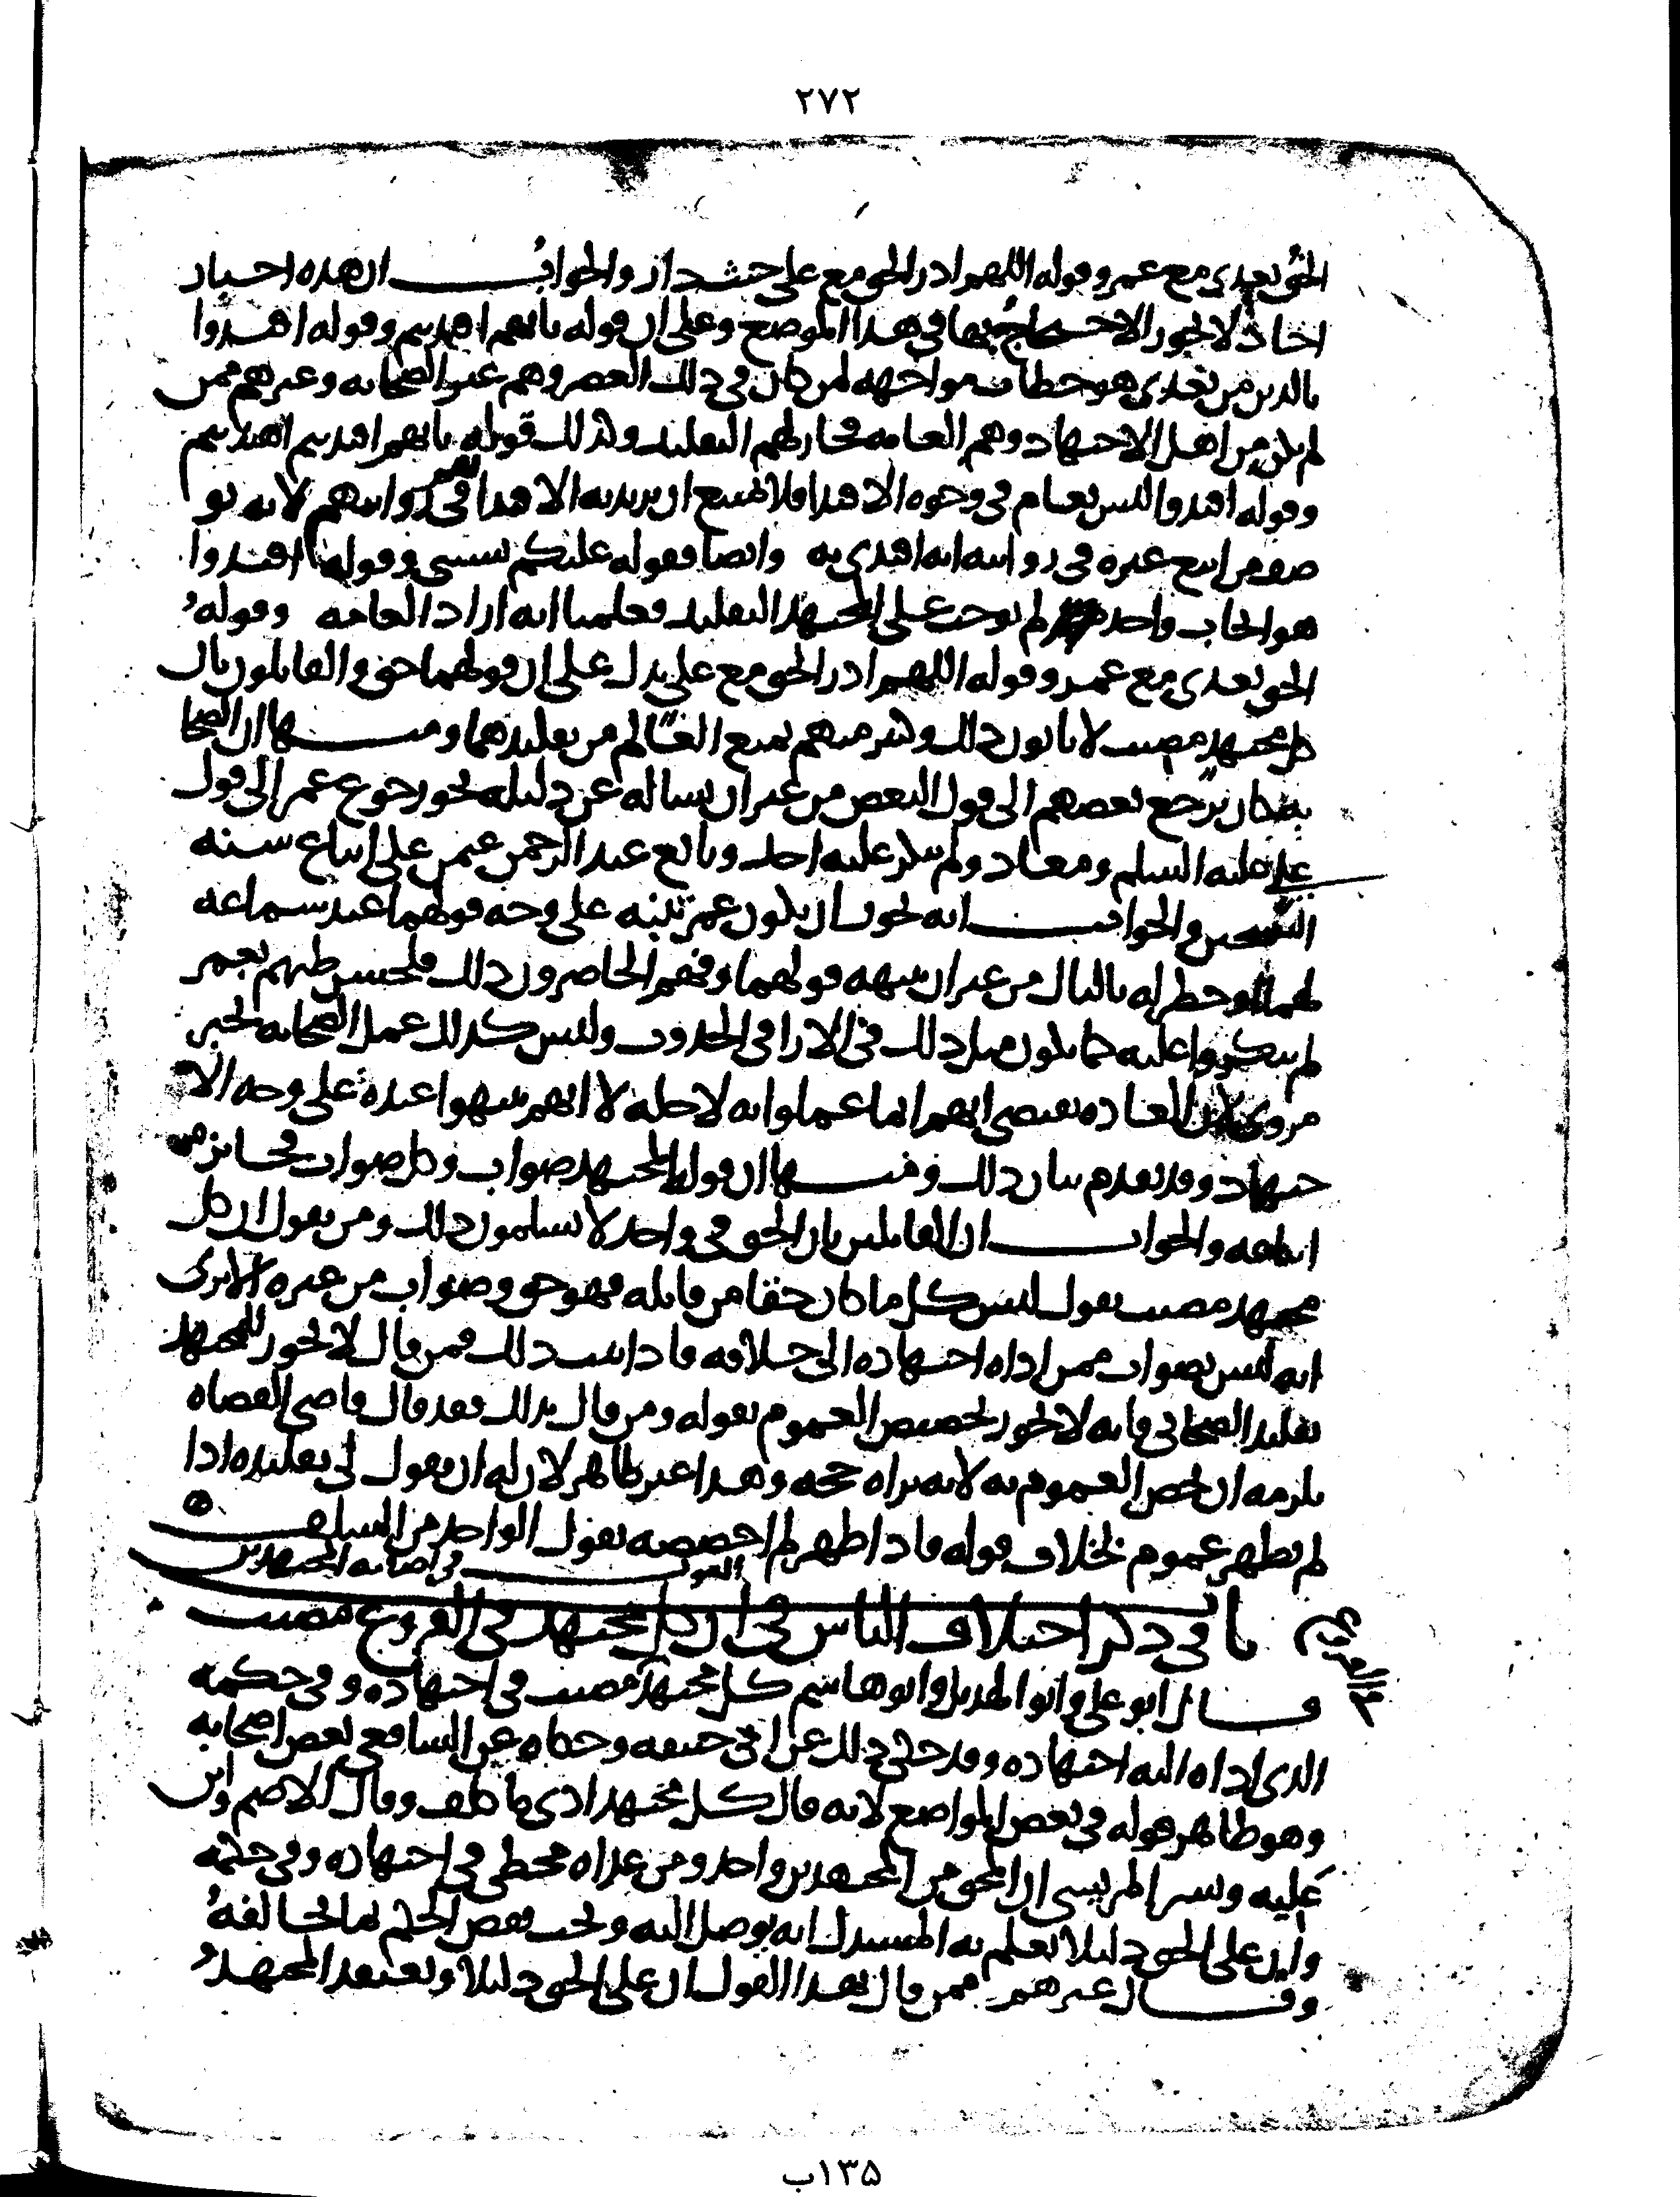 ٢٧٢
الحق بعدي مع عمر وقوله اللهم ادر الحق مع علي حيث دار والجواب ان هذه اخبار
احاد لا يجوز الاحتجاج بها في هذا الموضع وعلى ان قوله بايهم اقتديتم وقوله اقتدوا
بالذين من بعدي هو خطاب مواجهه لمن كان في ذلك العصر وهم غير الصحابه وغيرهم ممن
لم يكن من اهل الاجتهاد وهم العامه فجاز لهم التقليد وكذلك قوله بايهم اقتديتم اهتديتم
وقوله اقتدوا ليس بعام في وجوه الاقتدا فلا يمتنع ان يريد به الاقتدا بهم في روايتهم لانه يو
صف من اتبع غيره في روايته انه اقتدى به وايضا فقوله عليكم بسنتي وقوله اقتدوا
هو ايجاب واحد لم يوجب على المجتهد التقليد فعلمنا انه اراد العامه وقوله
الحق بعدي مع عمر وقوله اللهم ادر الحق مع علي يدل على ان قولهما حق والقايلون بان
كل مجتهد مصيب لا يابون ذلك وكثير منهم يمنع العالم من تقليدهما ومنها ان الصحا
به كان يرجع بعضهم الى قول البعض من غير ان يساله عن دليله نحو رجوع عمر الى قول
علي عليه السلم ومعاذ ولم ينكر عليه احد وبايع عبد الرحمن عثمن على اتباع سنه
الشيخين والجواب انه يجوز ان يكون عمر تنبه على وجه قولهما عند سماعه
لهما او خطر له بالبال من غير ان ينبهه قولهما وفهم الحاضرون ذلك فلحسن ظنهم بعمر
لم ينكروا عليه كما يكون مثل ذلك في الارا في الحروب وليس كذلك عمل الصحابه لخبر
مروي لان العاده تقتضي انهم انما عملوا به لاجله لا انهم تنبهوا عنده على وجه الا
جتهاد وقد تقدم بيان ذلك ومنها ان قول المجتهد صواب وكل صواب فجائز
اتباعه والجواب ان القايلين بان الحق في واحد لا يسلمون ذلك ومن يقول ان كل
مجتهد مصيب يقول ليس كل ما كان حقا من قايله فهو حق وصواب من غيره الا ترى
انه ليس بصواب ممن اداه اجتهاده الى خلافه فاذا ثبت ذلك فمن قال لا يجوز للمجتهد
تقليد الصحابي فانه لا يجوز تخصيص العموم بقوله ومن قال بذلك فقد قال قاضي القضاه
يلزمه ان يخص العموم به لانه يراه حجه وهذا غير ظاهر لان له ان يقول لي تقليده اذا
لم يظهر عموم بخلاف قوله فاذا ظهر لم اخصصه بقول الواحد من السلف
القول في اصابه المجتهدين
باب في ذكر اختلاف الناس في ان كل مجتهد في الفروع مصيب
قال ابو علي وابو الهذيل وابو هاشم كل مجتهد مصيب في اجتهاده وفي حكمه
الذي اداه اليه اجتهاده وقد حكي ذلك عن ابي حنيفه وحكاه عن الشافعي بعض اصحابه
وهو ظاهر قوله في بعض المواضع لانه قال كل مجتهد ادى ما كلف وقال الاصم وابن
علية وبشر المريسي ان المحق من المجتهدين واحد ومن عداه مخطي في اجتهاده وفي حكمه
وان على الحق دليلا يعلم به المستدل انه يوصل اليه ويجب نقض الحكم بما يخالفه
وقال غيرهم ممن قال بهذا القول ان على الحق دليلا ويعتقد المجتهد
١٣٥ب